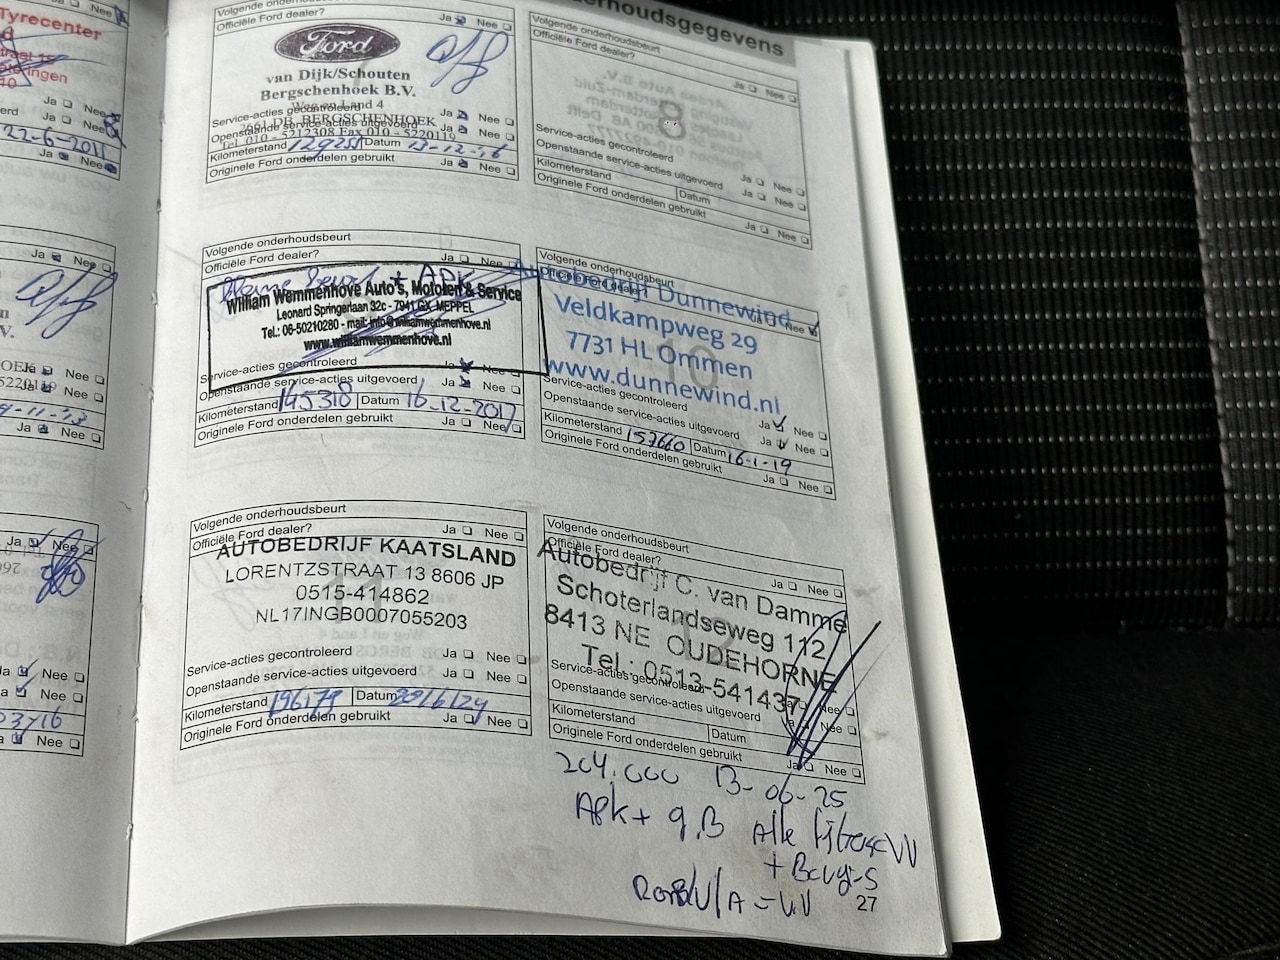 Tyrecenter
Ja Nee
22-6-2011
Ja Nee
Ja Nee
Ja Nee
Ja Nee
Ja Nee
Ja Nee
Ja Nee
Ja Nee
Onderhoudsgegevens
Volgende onderhoudsbeurt
Officiële Ford dealer? Ja Nee
Ford
van Dijk/Schouten
Bergschenhoek B.V.
Weg en Land 4
2661 DB BERGSCHENHOEK
Tel. 010 - 5212308 Fax 010 - 5220119
Service-acties gecontroleerd Ja Nee
Openstaande service-acties uitgevoerd Ja Nee
Kilometerstand Datum 13-12-'16
Originele Ford onderdelen gebruikt Ja Nee
Volgende onderhoudsbeurt
Officiële Ford dealer? Ja Nee
8
Service-acties gecontroleerd Ja Nee
Openstaande service-acties uitgevoerd Ja Nee
Kilometerstand Datum
Originele Ford onderdelen gebruikt Ja Nee
Volgende onderhoudsbeurt
Officiële Ford dealer? Ja Nee
APK
William Wemmenhove Auto's, Motoren & Service
Leonard Springerlaan 32c - 7941 GX MEPPEL
Tel.: 06-50210280 - mail: info@williamwemmenhove.nl
www.williamwemmenhove.nl
Service-acties gecontroleerd Ja Nee
Openstaande service-acties uitgevoerd Ja Nee
Kilometerstand 145318 Datum 16-12-2017
Originele Ford onderdelen gebruikt Ja Nee
Volgende onderhoudsbeurt
Officiële Ford dealer? Ja Nee
Autobedrijf Dunnewind
Veldkampweg 29
7731 HL Ommen
www.dunnewind.nl
10
Service-acties gecontroleerd Ja Nee
Openstaande service-acties uitgevoerd Ja Nee
Kilometerstand 157660 Datum 16-1-19
Originele Ford onderdelen gebruikt Ja Nee
Volgende onderhoudsbeurt
Officiële Ford dealer? Ja Nee
AUTOBEDRIJF KAATSLAND
LORENTZSTRAAT 13 8606 JP
0515-414862
NL17INGB0007055203
11
Service-acties gecontroleerd Ja Nee
Openstaande service-acties uitgevoerd Ja Nee
Kilometerstand 196179 Datum
Originele Ford onderdelen gebruikt Ja Nee
Volgende onderhoudsbeurt
Officiële Ford dealer? Ja Nee
Autobedrijf C. van Damme
Schoterlandseweg 112
8413 NE OUDEHORNE
Tel.: 0513-541437
Service-acties gecontroleerd Ja Nee
Openstaande service-acties uitgevoerd Ja Nee
Kilometerstand Datum
Originele Ford onderdelen gebruikt Ja Nee
204.000 13-06-25
APK + g.B Alle
+ Bougs
27